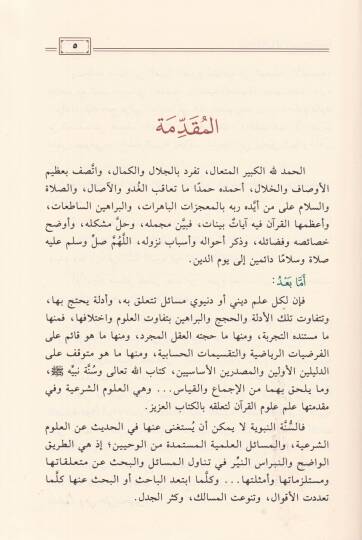 ٥
المُقَدِّمَة
الحمد لله الكبير المتعال، تفرد بالجلال والكمال، واتَّصف بعظيم
الأوصاف والخلال، أحمده حمدًا ما تعاقب الغُدو والآصال، والصلاة
والسلام على من أيَّده ربه بالمعجزات الباهرات، والبراهين الساطعات،
وأعظمها القرآن فيه آياتٌ بينات، فبيَّن مجمله، وحلَّ مشكله، وأوضح
خصائصه وفضائله، وذكر أحواله وأسباب نزوله، اللَّهُمَّ صلِّ وسلم عليه
صلاة وسلامًا دائمين إلى يوم الدين.
أَمَّا بَعْدُ:
فإن لكل علم ديني أو دنيوي مسائل تتعلق به، وأدلة يحتج بها،
وتتفاوت تلك الأدلة والحجج والبراهين بتفاوت العلوم واختلافها، فمنها
ما مستنده التجربة، ومنها ما حجته العقل المجرد، ومنها ما هو قائم على
الفرضيات الرياضية والتقسيمات الحسابية، ومنها ما هو متوقف على
الدليلين الأولين والمصدرين الأساسيين، كتاب الله تعالى وسُنَّة نبيِّه ﷺ،
وما يلحق بهما من الإجماع والقياس... وهي العلوم الشرعية وفي
مقدمتها علم علوم القرآن لتعلقه بالكتاب العزيز.
فالسُّنَّة النبوية لا يمكن أن يُستغنى عنها في الحديث عن العلوم
الشرعية، والمسائل العلمية المستمدة من الوحيين؛ إذ هي الطريق
الواضح والنبراس النيِّر في تناول المسائل والبحث عن متعلقاتها
ومستلزماتها وأمثلتها... وكلَّما ابتعد الباحث أو البحث عنها كلَّما
تعددت الأقوال، وتنوعت المسالك، وكثر الجدل.